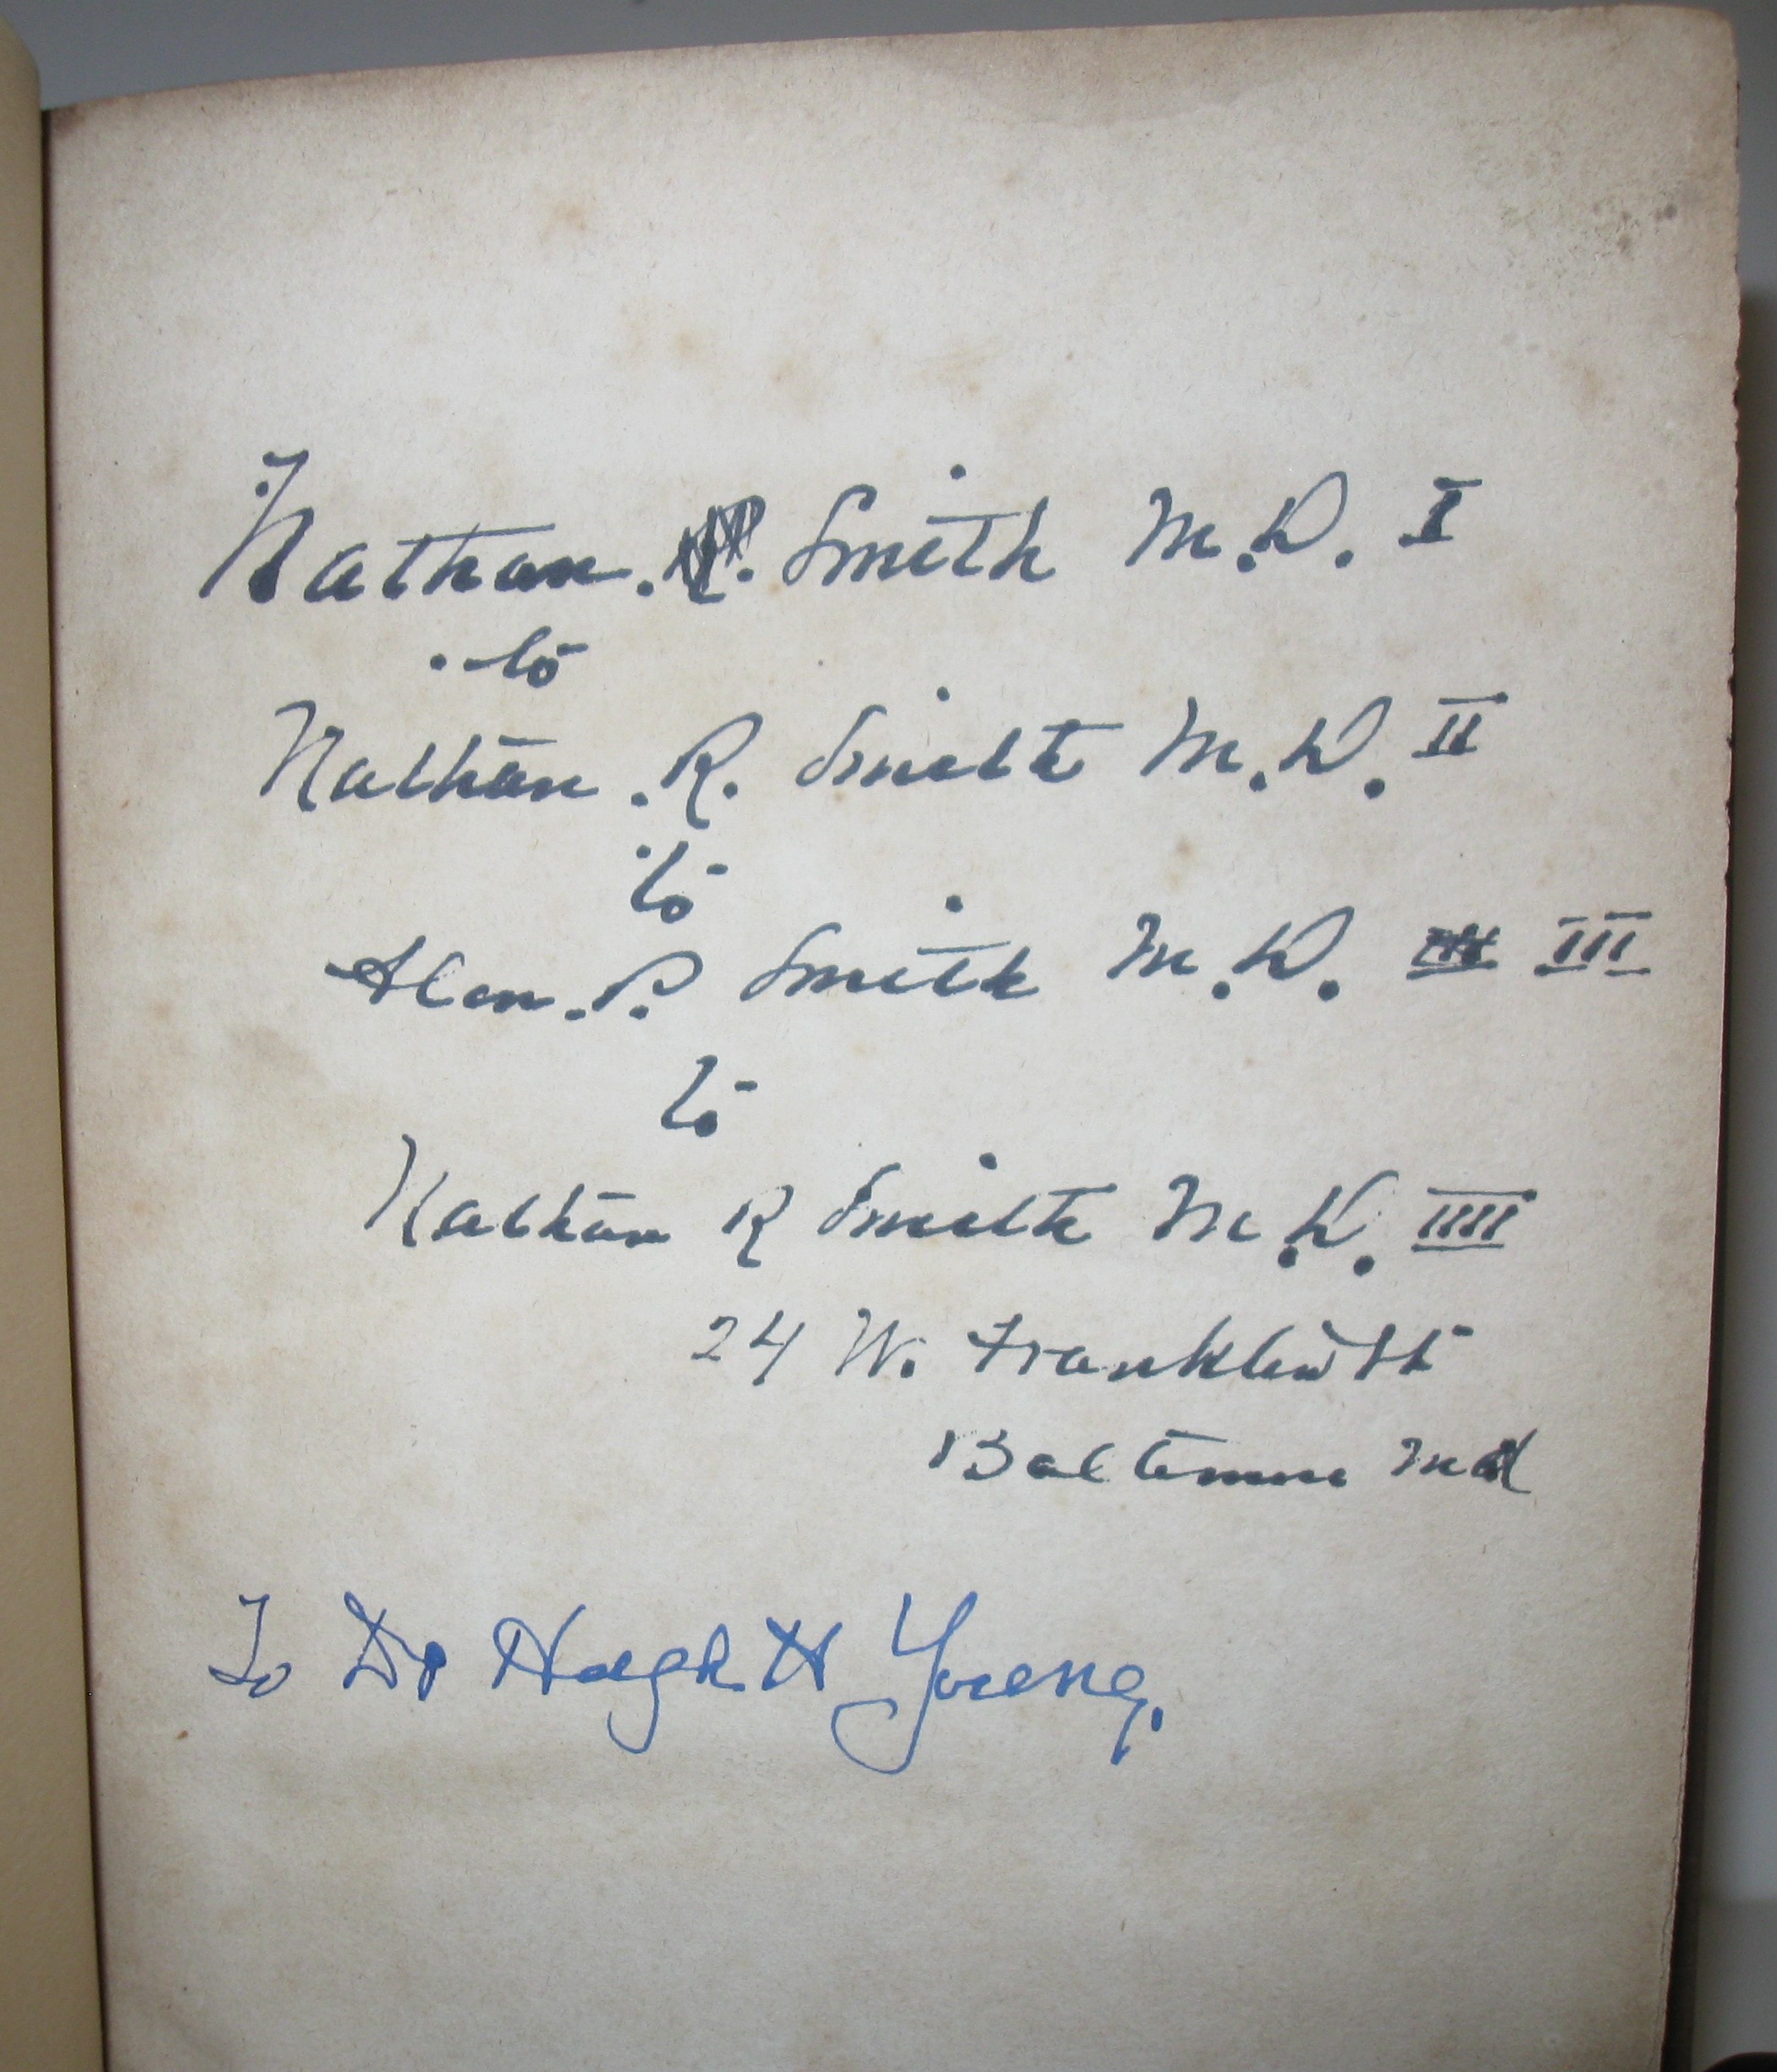 Nathan. Smith M.D. I
to
Nathan. R. Smith M.D. II
to
Alan. P. Smith M.D. III
to
Nathan R Smith M.D. IIII
24 W. Franklin St
Baltimore Md
To Dr Hugh H Young.